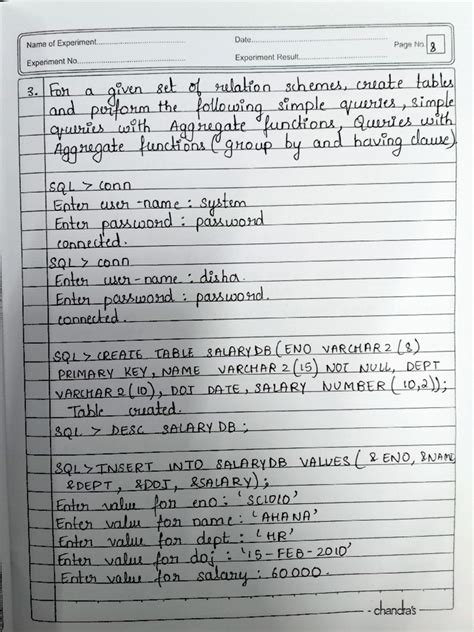 Name of Experiment
Date
Page No. 8
Experiment No.
Experiment Result
3. For a given set of relation schemes, create tables
and perform the following simple queries, simple
queries with Aggregate functions, Queries with
Aggregate functions (group by and having clause)
SQL > conn
Enter user-name : system
Enter password : password
connected.
SQL > conn
Enter user-name : disha.
Enter password : password.
connected.
SQL > CREATE TABLE SALARYDB (ENO VARCHAR2 (8)
PRIMARY KEY, NAME VARCHAR2 (15) NOT NULL, DEPT
VARCHAR2 (10), DOJ DATE, SALARY NUMBER (10,2));
Table created.
SQL > DESC SALARYDB ;
SQL > INSERT INTO SALARYDB VALUES ( & ENO, &NAME
&DEPT, &DOJ, &SALARY);
Enter value for eno : 'SC1010'
Enter value for name : 'AHANA'
Enter value for dept : 'HR'
Enter value for doj : '15-FEB-2010'
Enter value for salary : 60000.
chandra's